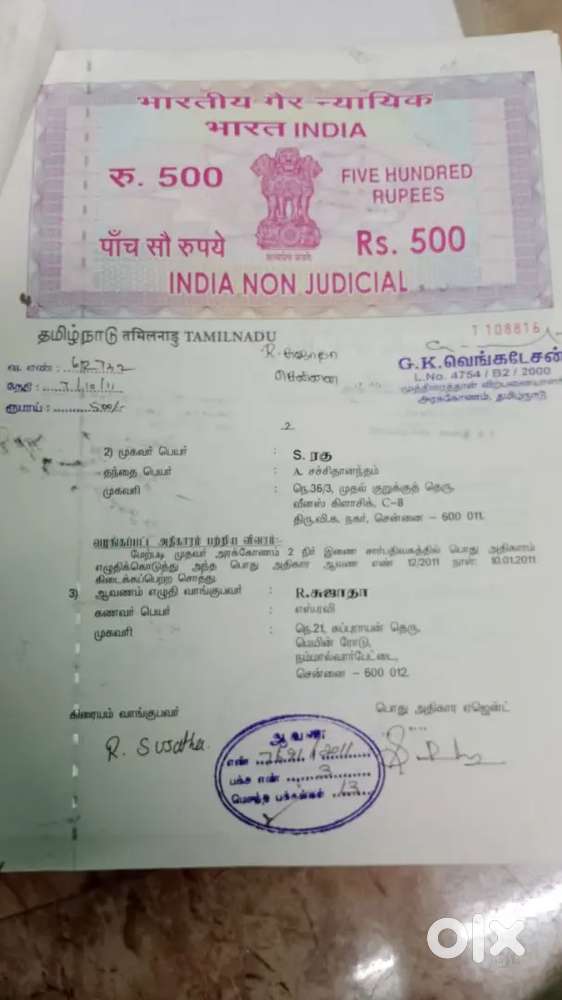 भारतीय गैर न्यायिक
भारत INDIA
रु. 500
FIVE HUNDRED
RUPEES
पाँच सौ रुपये
Rs. 500
सत्यमेव जयते
INDIA NON JUDICIAL
தமிழ்நாடு तमिलनाडु TAMILNADU
1 108816
R. சுஜாதா
சென்னை
வ. எண் :
தேதி : 7/10/11
ரூபாய் : 500/-
G.K.வெங்கடேசன்
L.No. 4754 / B2 / 2000
முத்திரைத்தாள் விற்பனையாளர்
அரக்கோணம், தமிழ்நாடு
2
2) முகவர் பெயர் : S. ரகு
தந்தை பெயர் : A. சச்சிதானந்தம்
முகவரி : நெ.36/3, முதல் குறுக்குத் தெரு,
வீனஸ் கிளாசிக், C-8
திரு.வி.க. நகர், சென்னை - 600 011.
வழங்கப்பட்ட அதிகாரம் பற்றிய விவரம்:-
மேற்படி முதவர் அரக்கோணம் 2 நிர் இணை சார்பதிவகத்தில் பொது அதிகாரம்
எழுதிக்கொடுத்து அந்த பொது அதிகார ஆவண எண் 12/2011 நாள்: 10.01.2011
கிடைக்கப்பெற்ற சொத்து.
3) ஆவணம் எழுதி வாங்குபவர் : R.சுஜாதா
கணவர் பெயர் : எஸ்.ரவி
முகவரி : நெ.21, சுப்புராயன் தெரு,
மெயின் ரோடு,
நம்மாழ்வார்பேட்டை,
சென்னை - 600 012.
கிரையம் வாங்குபவர்
பொது அதிகார ஏஜென்ட்
R. Sujatha
ஆவண
எண் /2011
பக்க எண் 3
மொத்த பக்கங்கள் 13
olx